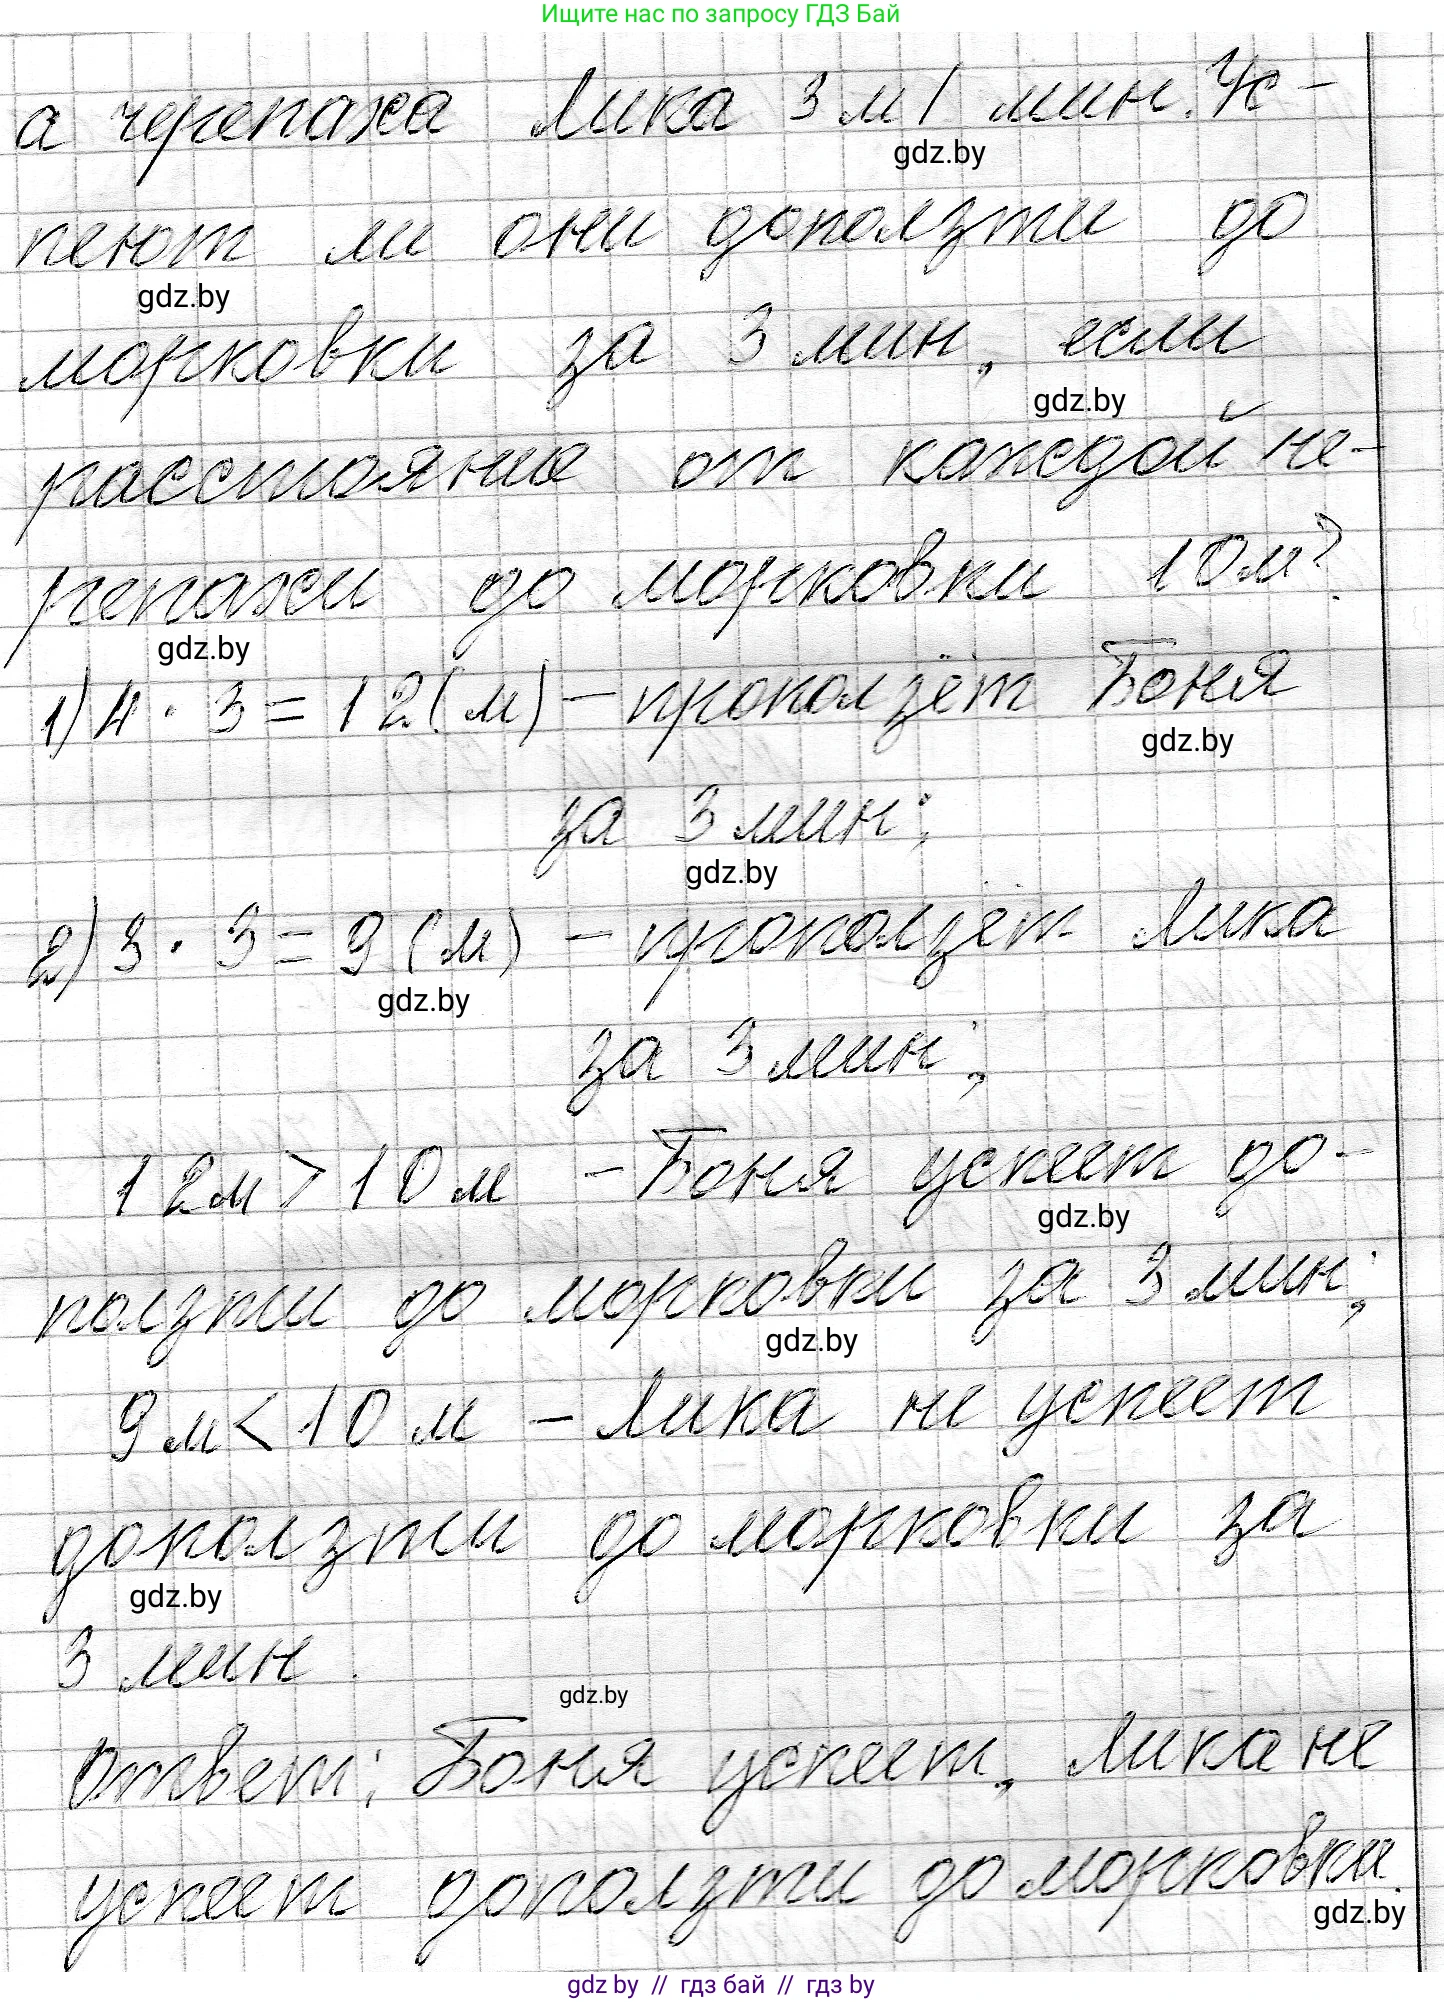 Ищите нас по запросу ГДЗ Бай
а черепаха Лика 3 м/мин. Ус-
gdz.by
пеют ли они доползти до
gdz.by
морковки за 3 мин, если
gdz.by
расстояние от каждой че-
репахи до морковки 10 м?
gdz.by
1) 4 · 3 = 12 (м) – проползёт Боня
gdz.by
за 3 мин;
gdz.by
2) 3 · 3 = 9 (м) – проползёт Лика
gdz.by
за 3 мин;
12 м > 10 м – Боня успеет до-
gdz.by
ползти до морковки за 3 мин;
gdz.by
9 м < 10 м – Лика не успеет
доползти до морковки за
gdz.by
3 мин.
gdz.by
Ответ: Боня успеет, Лика не
успеет доползти до морковки.
gdz.by
gdz by // гдз бай // гдз by